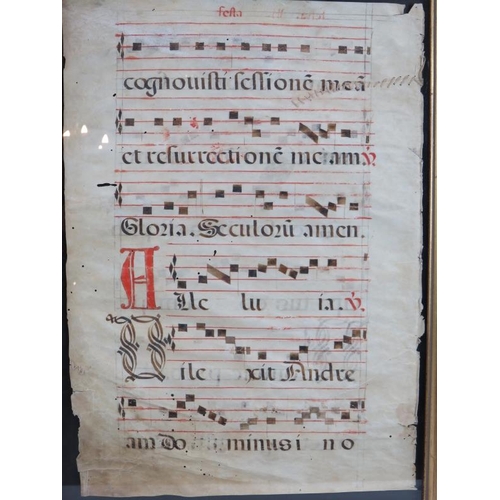 festa
cognovisti sessionē meā
et resurrectionē meam. ℣.
Gloria. Seculorū amen.
Alle lu ia. ℣.
Dilexit Andre
am Dominus in o